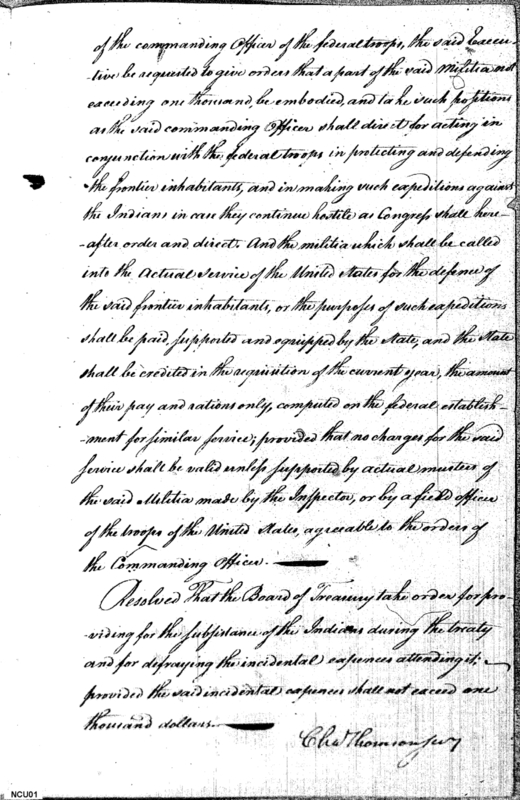 of the commanding Officer of the federal troops, the said Execu-
-tive be requested to give orders that a part of the said Militia not
exceeding one thousand, be embodied, and take such positions
as the said commanding Officer shall direct for acting in
conjunction with the federal troops in protecting and defending
the frontier inhabitants, and in making such expeditions against
the Indians in case they continue hostile as Congress shall here-
-after order and direct. And the militia which shall be called
into the Actual Service of the United States for the defence of
the said frontier inhabitants, or the purposes of such expeditions
shall be paid, supported and equipped by the State, and the State
shall be credited in the requisition of the current year, the amount
of their pay and rations only, computed on the federal establish-
-ment for similar service; provided that no charges for the said
service shall be valid unless supported by actual musters of
the said Militia made by the Inspector, or by a field officer
of the troops of the United States, agreable to the orders of
the Commanding Officer.
Resolved That the Board of Treasury take order for pro-
-viding for the subsistance of the Indians during the treaty
and for defraying the incidental expences attending it;
provided the said incidental expences shall not exceed one
thousand dollars.
Chas Thomson Secy
NCU01